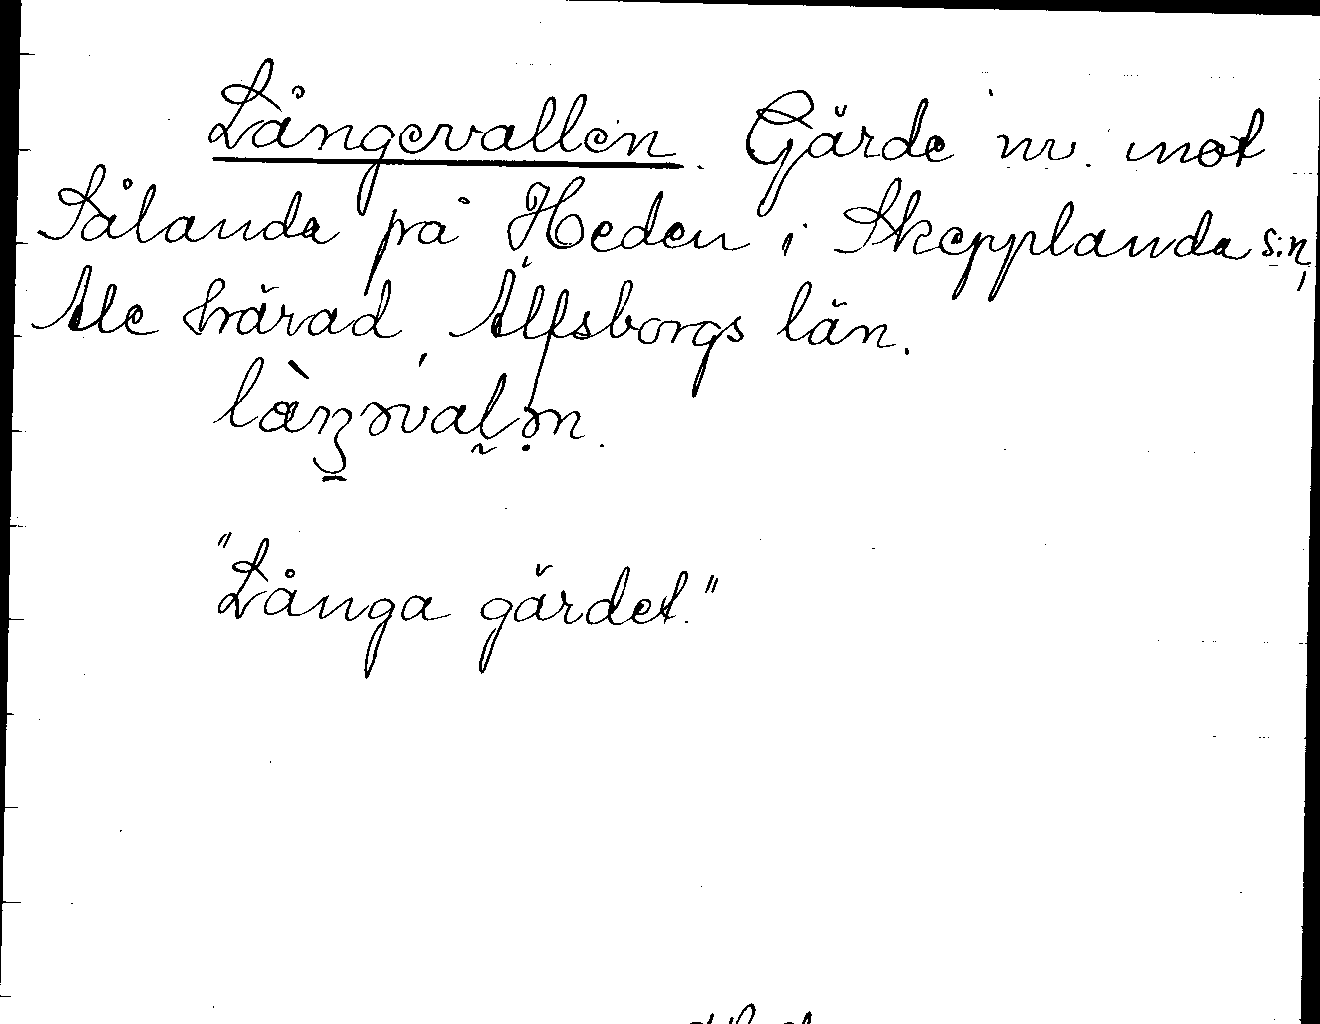 Långevallen. Gärde nv. mot
Sålanda på Heden i Skepplanda s:n,
Ale härad, Älfsborgs län.
"Långa gärdet."